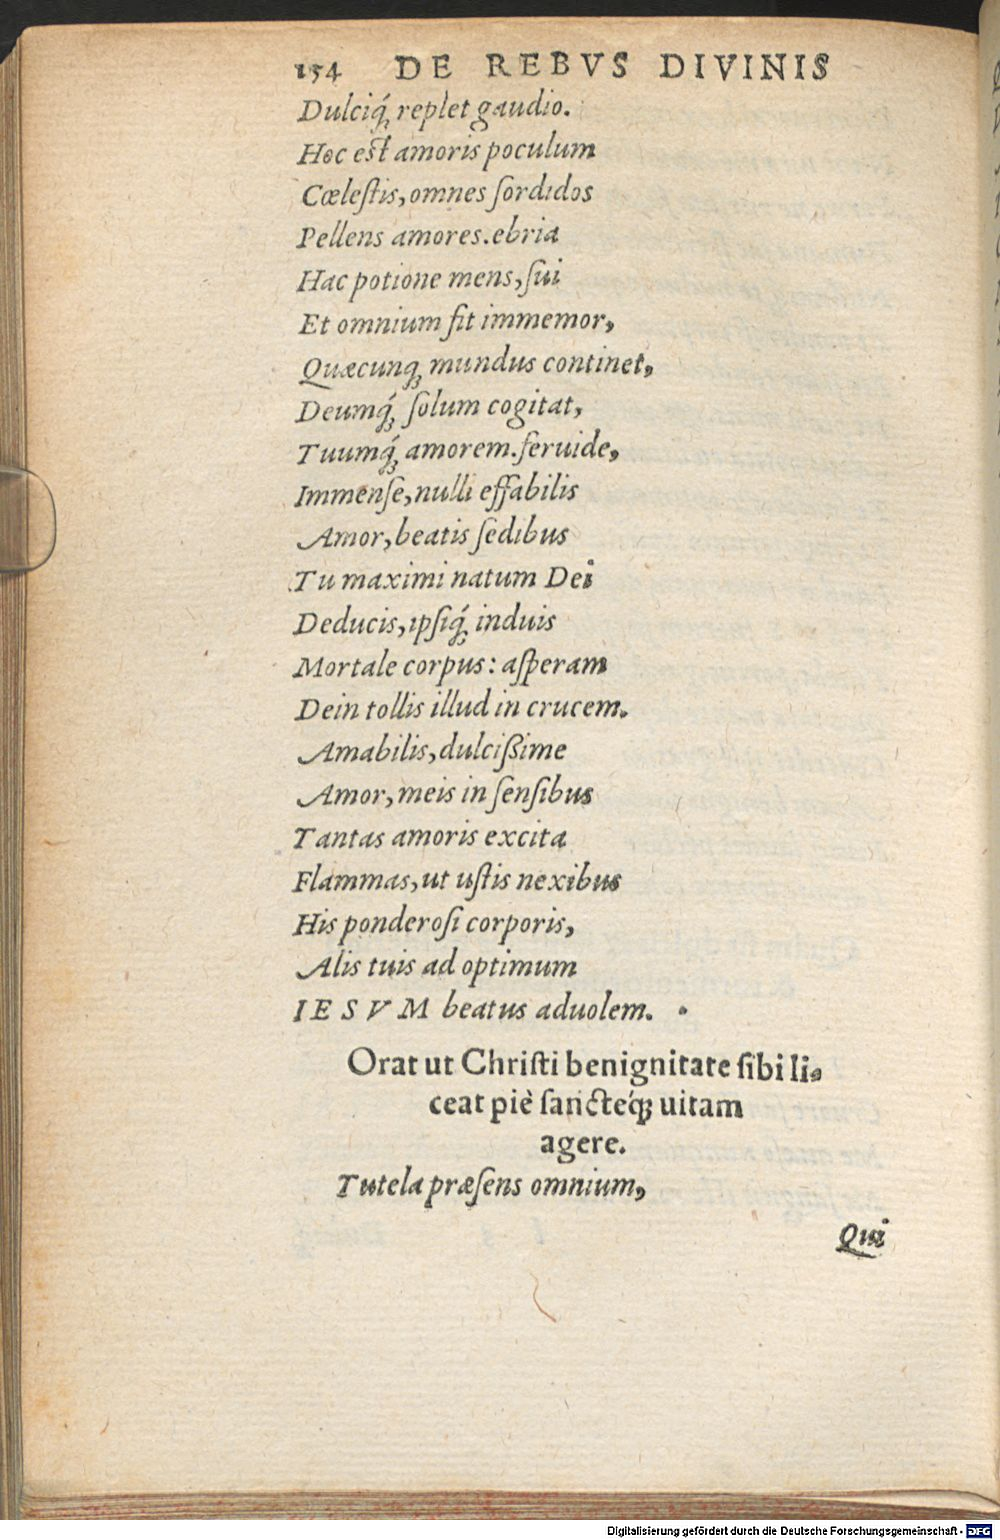 154 DE REBVS DIVINIS
Dulciq́; replet gaudio.
Hoc est amoris poculum
Cœleſtis, omnes ſordidos
Pellens amores. ebria
Hac potione mens, ſui
Et omnium fit immemor,
Quæcunq; mundus continet,
Deumq́; ſolum cogitat,
Tuumq́; amorem. feruide,
Immenſe, nulli effabilis
Amor, beatis ſedibus
Tu maximi natum Dei
Deducis, ipſiq́; induis
Mortale corpus: aſperam
Dein tollis illud in crucem.
Amabilis, dulciſsime
Amor, meis in ſenſibus
Tantas amoris excita
Flammas, ut uſtis nexibus
His ponderoſi corporis,
Alis tuis ad optimum
IESVM beatus aduolem.
Orat ut Chriſti benignitate ſibi li-
ceat piè ſancteq́; uitam
agere.
Tutela præſens omnium,
Qui
Digitalisierung gefördert durch die Deutsche Forschungsgemeinschaft - DFG